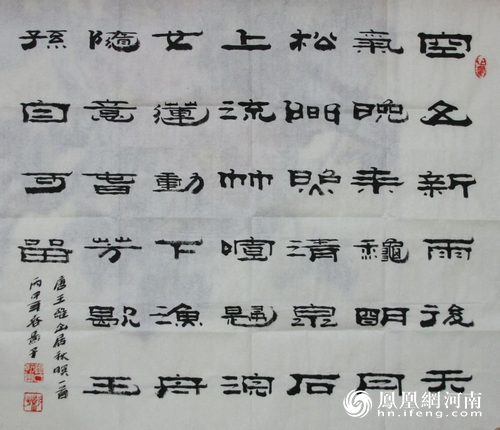 空山新雨後天
氣晚來龝明月
松間照清泉石
上流竹喧歸浣
女蓮動下漁舟
隨意春芳歇王
孫自可留
唐王維山居秋暝一首
丙申
鳳凰網河南
hn.ifeng.com